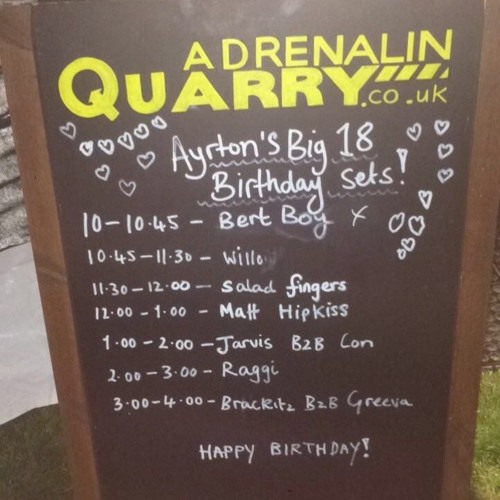 ADRENALIN
QUARRY.co.uk
Ayrton's Big 18
Birthday Sets!
10-10.45 - Bert Boy x
10.45-11.30 - Willo
11.30-12.00 - Salad fingers
12.00-1.00 - Matt Hipkiss
1.00-2.00 - Jarvis B2B Con
2.00-3.00 - Raggi
3.00-4.00 - Brackitz B2B Greeva
HAPPY BIRTHDAY!